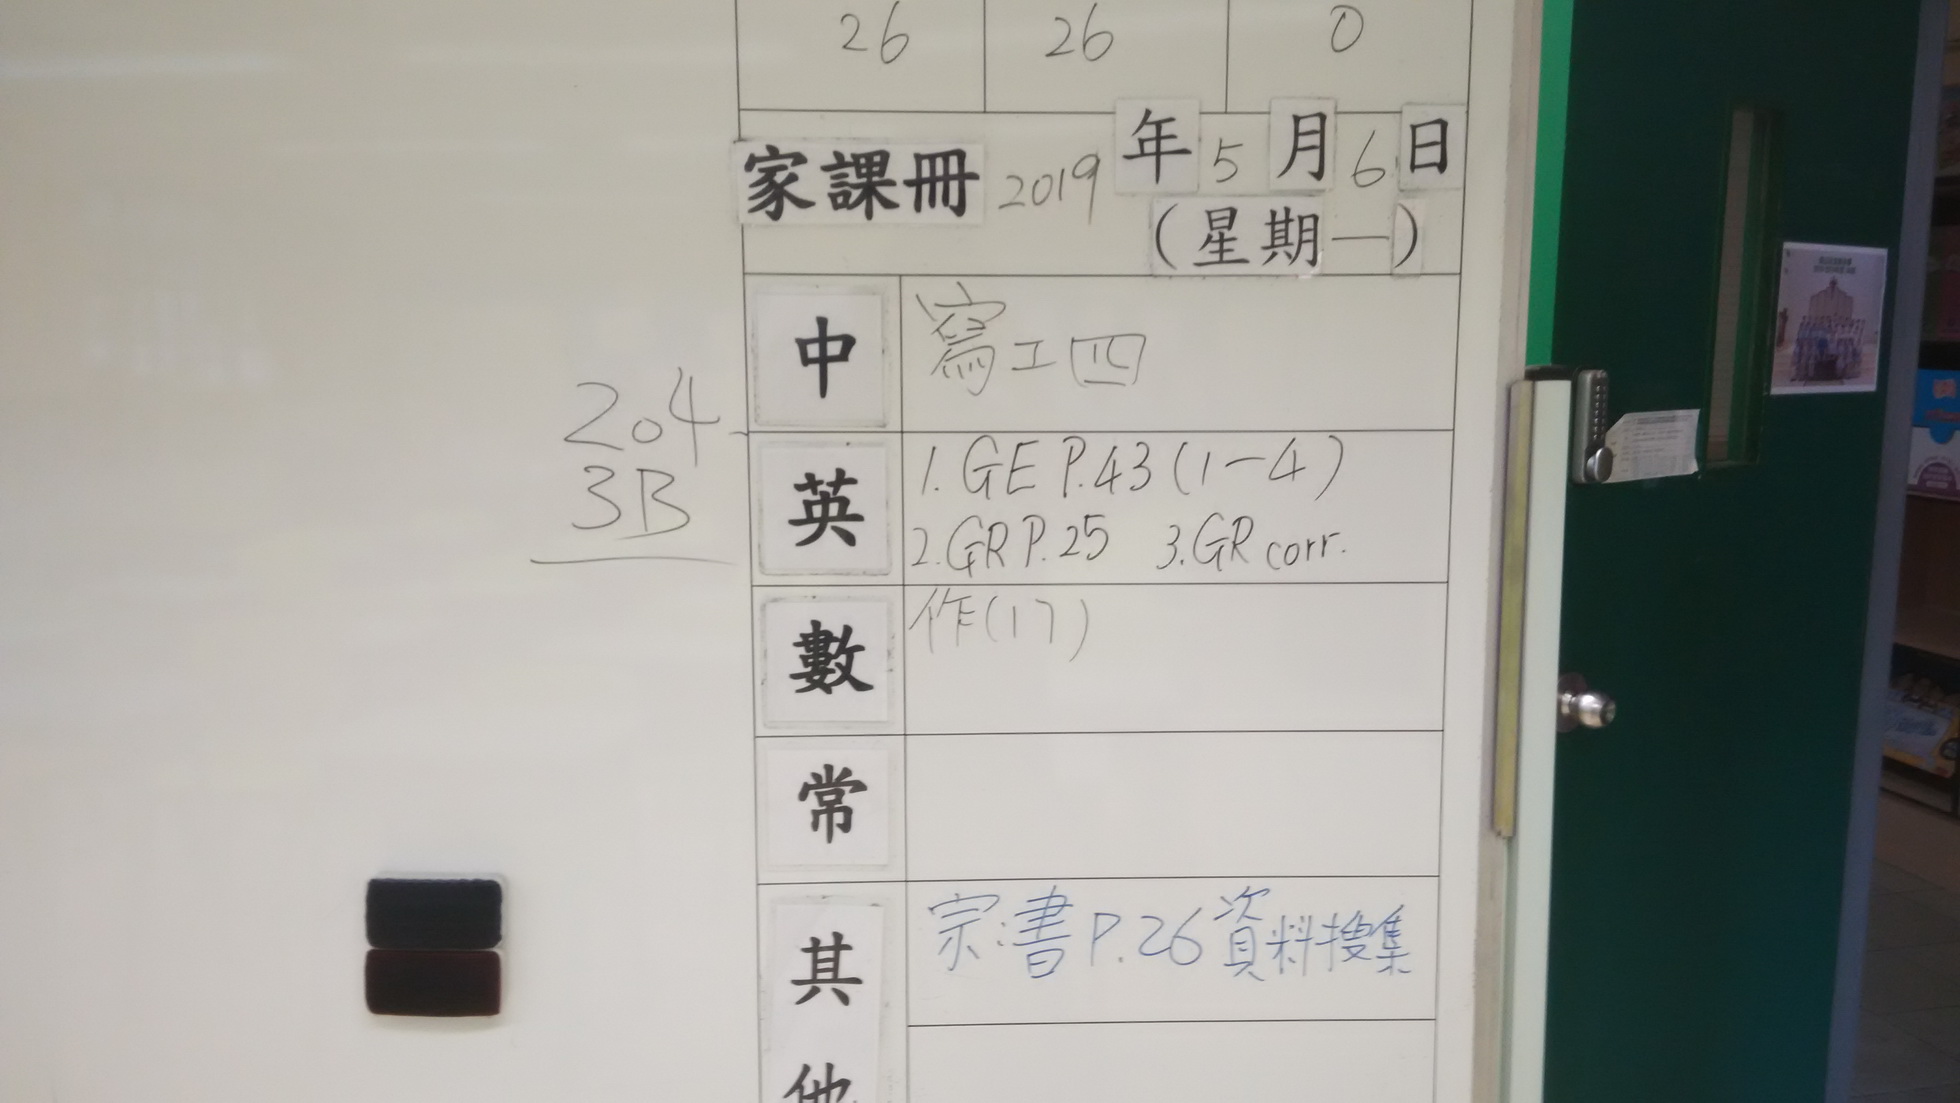 26 26 0
家課冊 2019年5月6日
(星期一)
204
3B
中 寫工四
英 1. GE P.43 (1-4)
2. GR P.25 3. GR corr.
數 作(17)
常
其他 宗:書 P.26 資料搜集